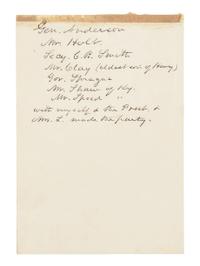 Gen. Anderson
Mr Holt
Secy. C. B. Smith
Mr. Clay (eldest son of Henry)
Gov. Sprague
Mr. Shaw of Ky.
Mr. Speed "
with myself & the Prest. &
Mrs. L. made the party.